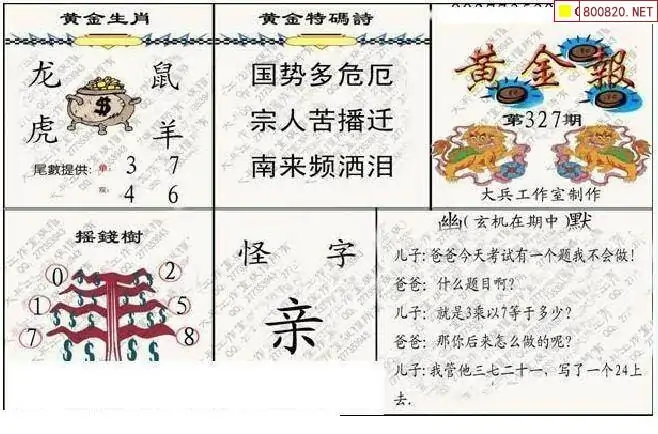 800820.NET
黄金生肖
龙 鼠
虎 羊
尾數提供:
3 7
4 6
黄金特碼詩
国势多危厄
宗人苦播迁
南来频洒泪
黄金報
第327期
大兵工作室制作
摇錢樹
0 2
1 5
7 8
怪 字
亲
幽(玄机在期中)默
儿子:爸爸今天考试有一个题我不会做!
爸爸: 什么题目啊?
儿子: 就是3乘以7等于多少?
爸爸: 那你后来怎么做的呢?
儿子:我管他三七二十一, 写了一个24上
去.